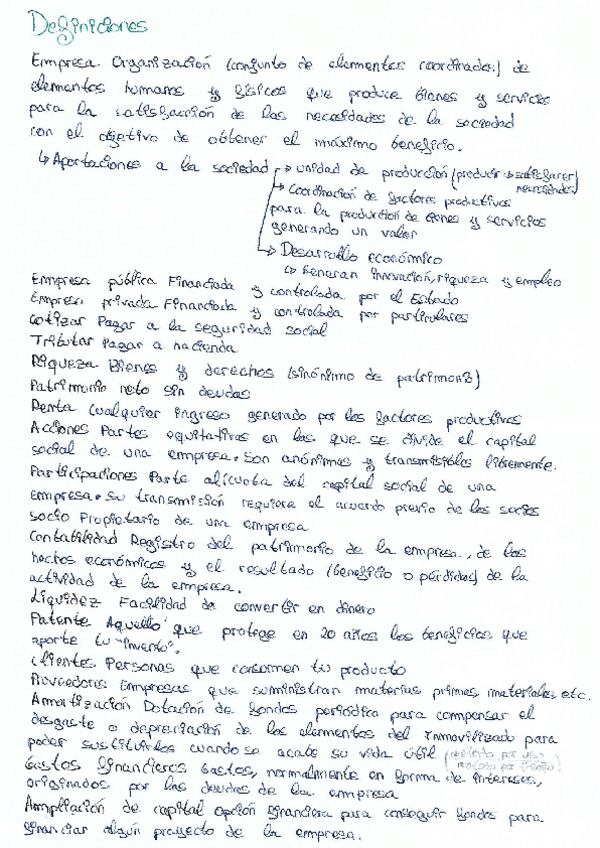 Definiciones
Empresa. Organización (conjunto de elementos coordinados) de
elementos humanos y físicos que produce bienes y servicios
para la satisfacción de las necesidades de la sociedad
con el objetivo de obtener el máximo beneficio.
↳ Aportaciones a la sociedad → unidad de producción (producir → satisfacer
necesidades)
→ Coordinación de factores productivos
para la producción de bienes y servicios
generando un valor
→ Desarrollo económico
↳ Generan innovación, riqueza y empleo
Empresa pública Financiada y controlada por el Estado
Empresa privada Financiada y controlada por particulares
Cotizar Pagar a la seguridad social
Tributar Pagar a hacienda
Riqueza Bienes y derechos (sinónimo de patrimonio)
Patrimonio neto sin deudas
Renta Cualquier ingreso generado por los factores productivos
Acciones Partes equitativas en las que se divide el capital
social de una empresa. Son anónimas y transmisibles libremente.
Participaciones Parte alícuota del capital social de una
empresa. Su transmisión requiere el acuerdo previo de los socios
Socio Propietario de una empresa
Contabilidad Registro del patrimonio de la empresa, de los
hechos económicos y el resultado (beneficio o pérdidas) de la
actividad de la empresa.
Liquidez Facilidad de convertir en dinero
Patente Aquello que protege en 20 años los beneficios que
aporte tu "invento".
Clientes Personas que consumen tu producto
Proveedores Empresas que suministran materias primas materiales, etc.
Amortización Dotación de fondos periódica para compensar el
desgaste o depreciación de los elementos del inmovilizado para
poder sustituirlos cuando se acabe su vida útil
Gastos financieros Gastos, normalmente en forma de intereses,
originados por las deudas de la empresa
Ampliación de capital Opción financiera para conseguir fondos para
financiar algún proyecto de la empresa.